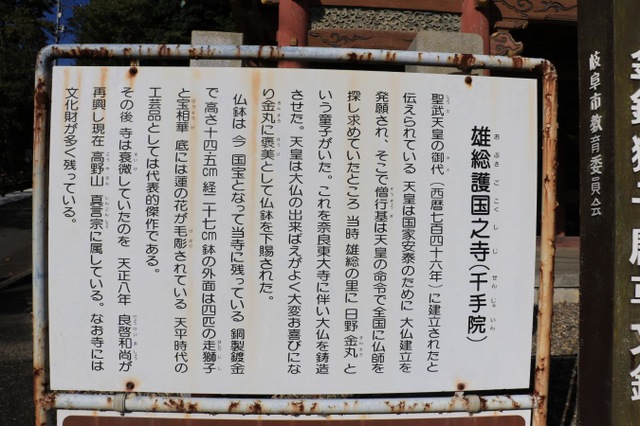 雄総護国之寺(千手院)
聖武天皇の御代(西暦七百四十六年)に建立されたと
伝えられている 天皇は国家安泰のために 大仏建立を
発願され、そこで僧行基は天皇の命令で全国に仏師を
探し求めていたところ 当時 雄総の里に 日野 金丸 と
いう童子がいた。これを奈良東大寺に伴い大仏を鋳造
させた。天皇は大仏の出来ばえがよく大変お喜びにな
り金丸に褒美として仏鉢を下賜された。
仏鉢は 今 国宝となって当寺に残っている 銅製鍍金
で 高さ十四・五㎝ 経二十七㎝ 鉢の外面は四匹の走獅子
と宝相華 底には蓮の花が毛彫されている 天平時代の
工芸品としては代表的傑作である。
その後 寺は衰微していたのを 天正八年 良啓和尚が
再興し現在 高野山 真言宗に属している。なお寺には
文化財が多く残っている。
岐阜市教育委員会